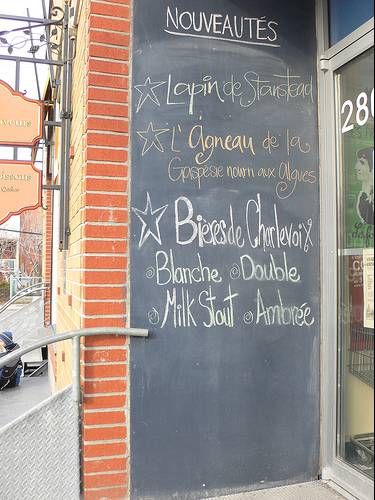 NOUVEAUTÉS
Lapin de Stanstead
L'Agneau de la
Gaspésie nourri aux Algues
Bières de Charlevoix
Blanche Double
Milk Stout Ambrée
280